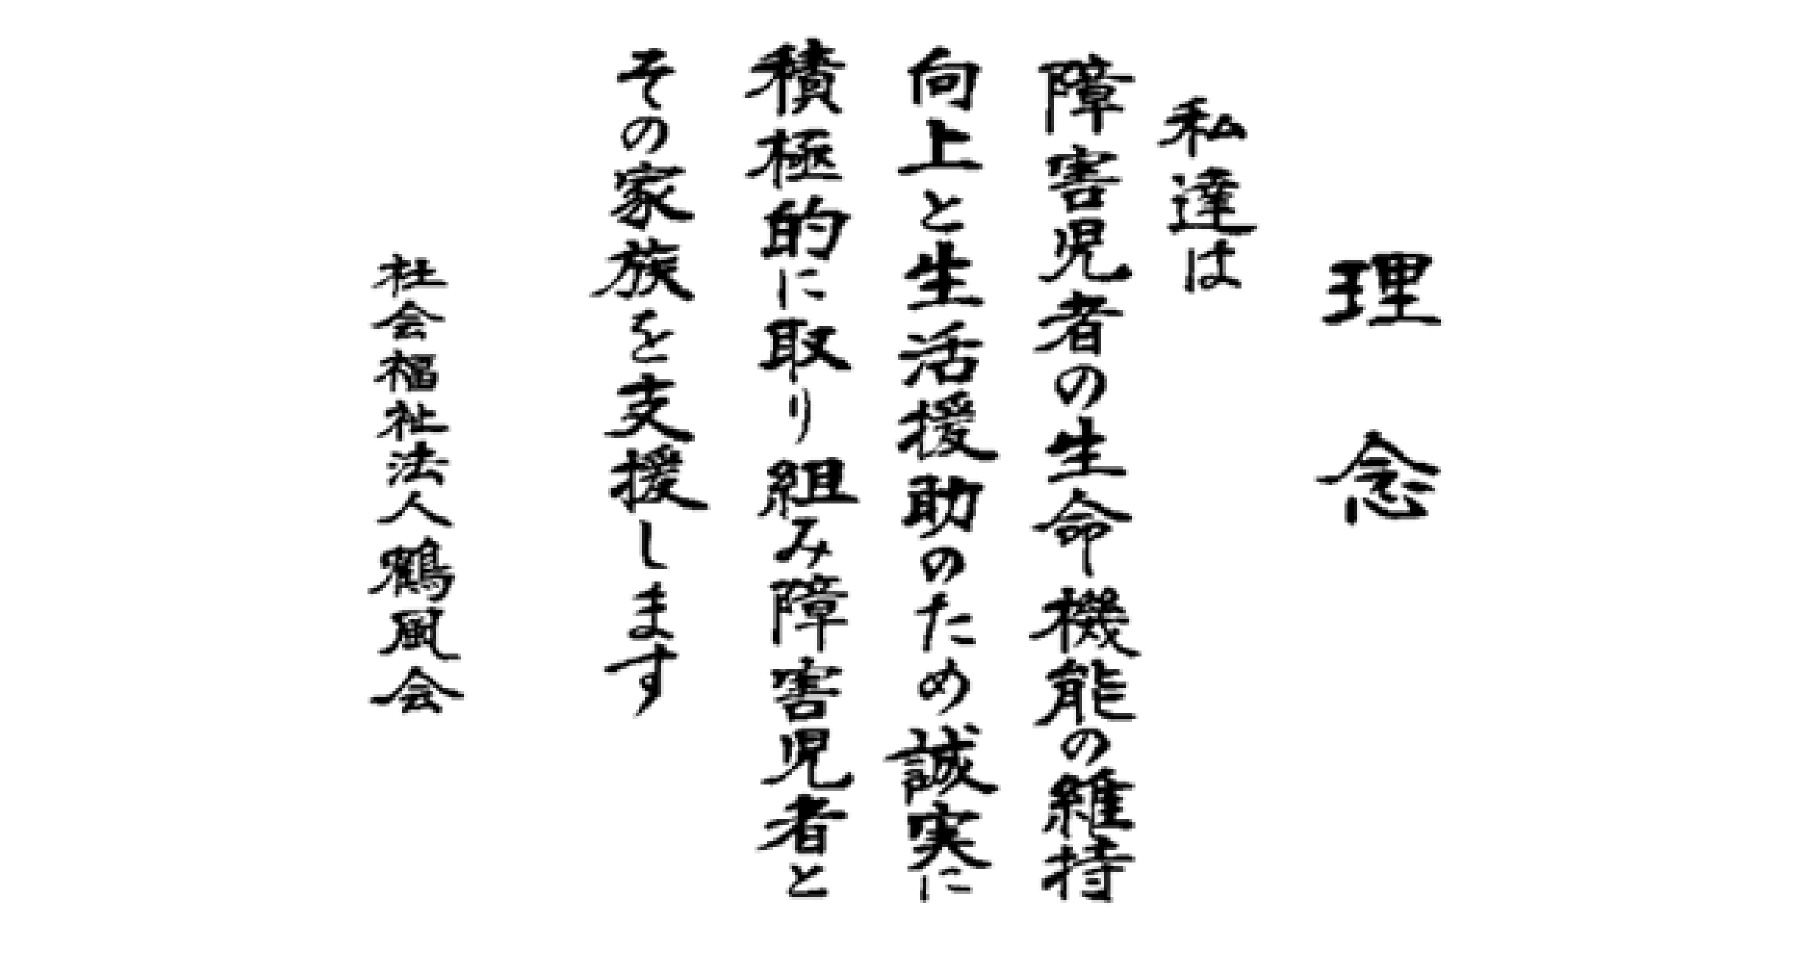 理念
私達は
障害児者の生命機能の維持
向上と生活援助のため誠実に
積極的に取り組み障害児者と
その家族を支援します
社会福祉法人鶴風会